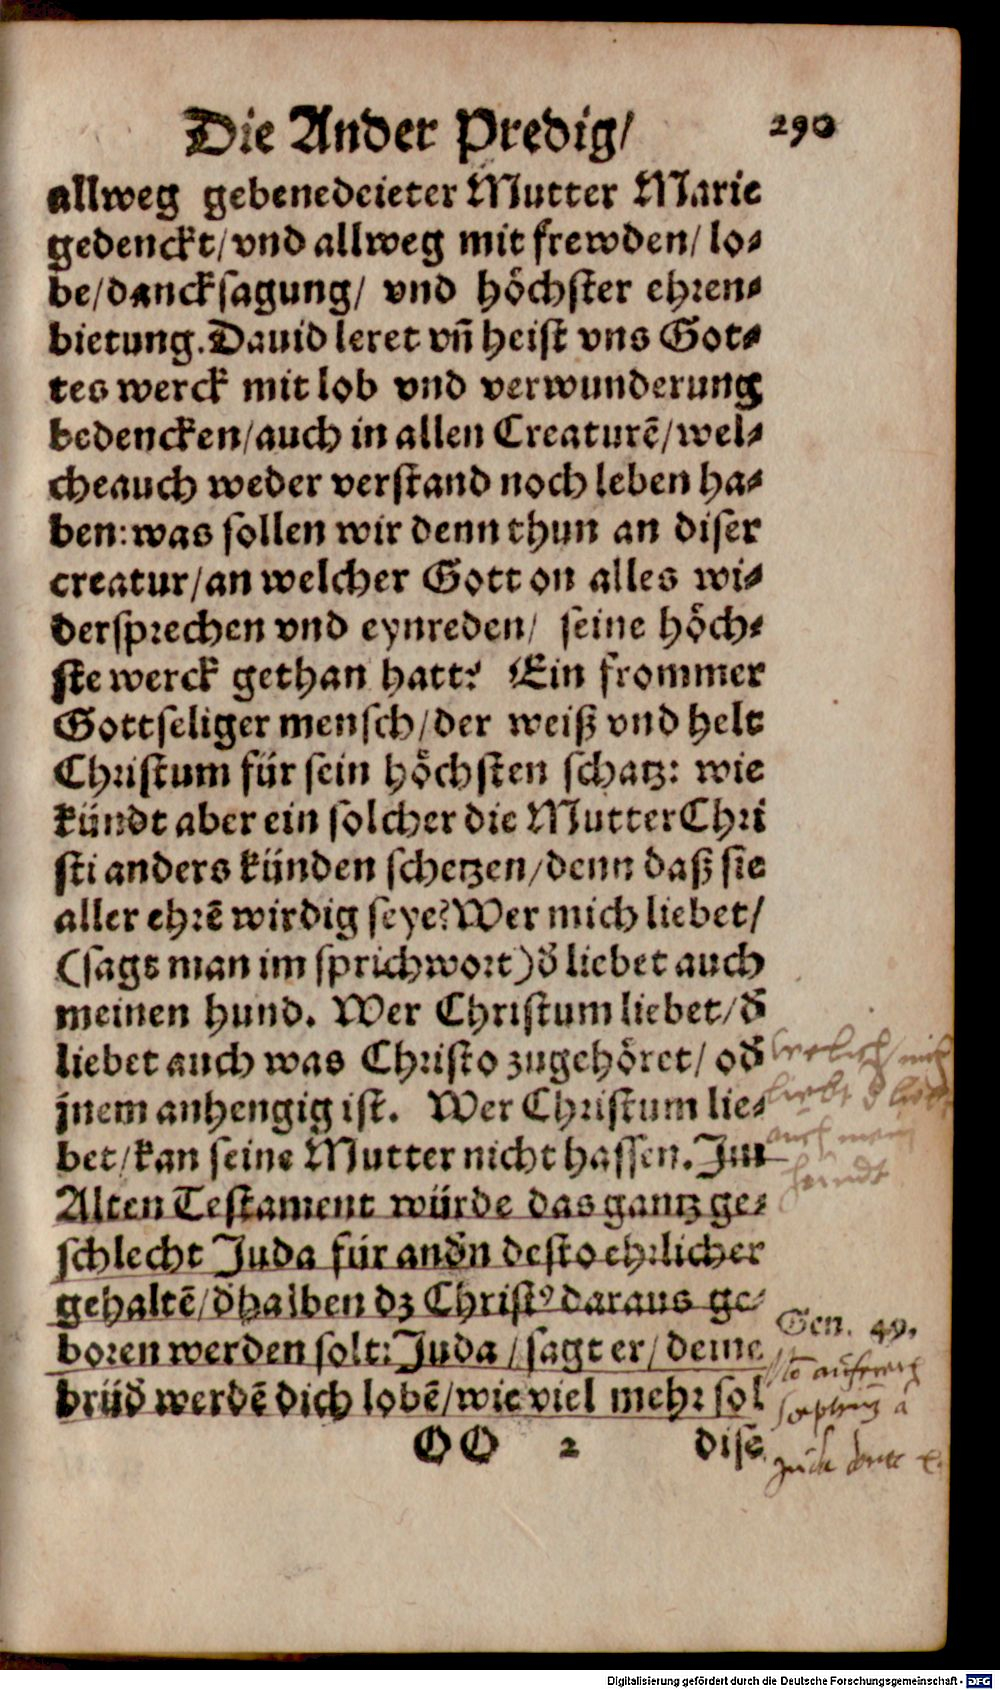 Die Ander Predig/ 290
allweg gebenedeieter Mutter Marie
gedenckt/vnd allweg mit frewden/lo⸗
be/dancksagung/ vnd höchster ehren⸗
bietung. Dauid leret vñ heist vns Got⸗
tes werck mit lob vnd verwunderung
bedencken/auch in allen Creaturẽ/wel⸗
che auch weder verstand noch leben ha⸗
ben: was sollen wir denn thun an diser
creatur/an welcher Gott on alles wi⸗
dersprechen vnd eynreden/ seine höch⸗
ste werck gethan hatt? Ein frommer
Gottseliger mensch/der weiß vnd helt
Christum für sein höchsten schatz: wie
kündt aber ein solcher die Mutter Chri
sti anders künden schetzen/denn daß sie
aller ehrẽ wirdig seye? Wer mich liebet/
(sags man im sprichwort) d̃ liebet auch
meinen hund. Wer Christum liebet/d̃
liebet auch was Christo zugehöret/ od̃
jnem anhengig ist. Wer Christum lie⸗
bet/kan seine Mutter nicht hassen. Im
Alten Testament würde das gantz ge⸗
schlecht Juda für and̃n desto ehrlicher
gehaltẽ/d̃halben dz Christꝰ daraus ge⸗
boren werden solt: Juda/sagt er/deine
brüd̃ werdẽ dich lobẽ/wie viel mehr sol
OO 2 dise
mich
liebt d̃ liebt
auch mein
hundt
Gen. 49.
Digitalisierung gefördert durch die Deutsche Forschungsgemeinschaft - DFG